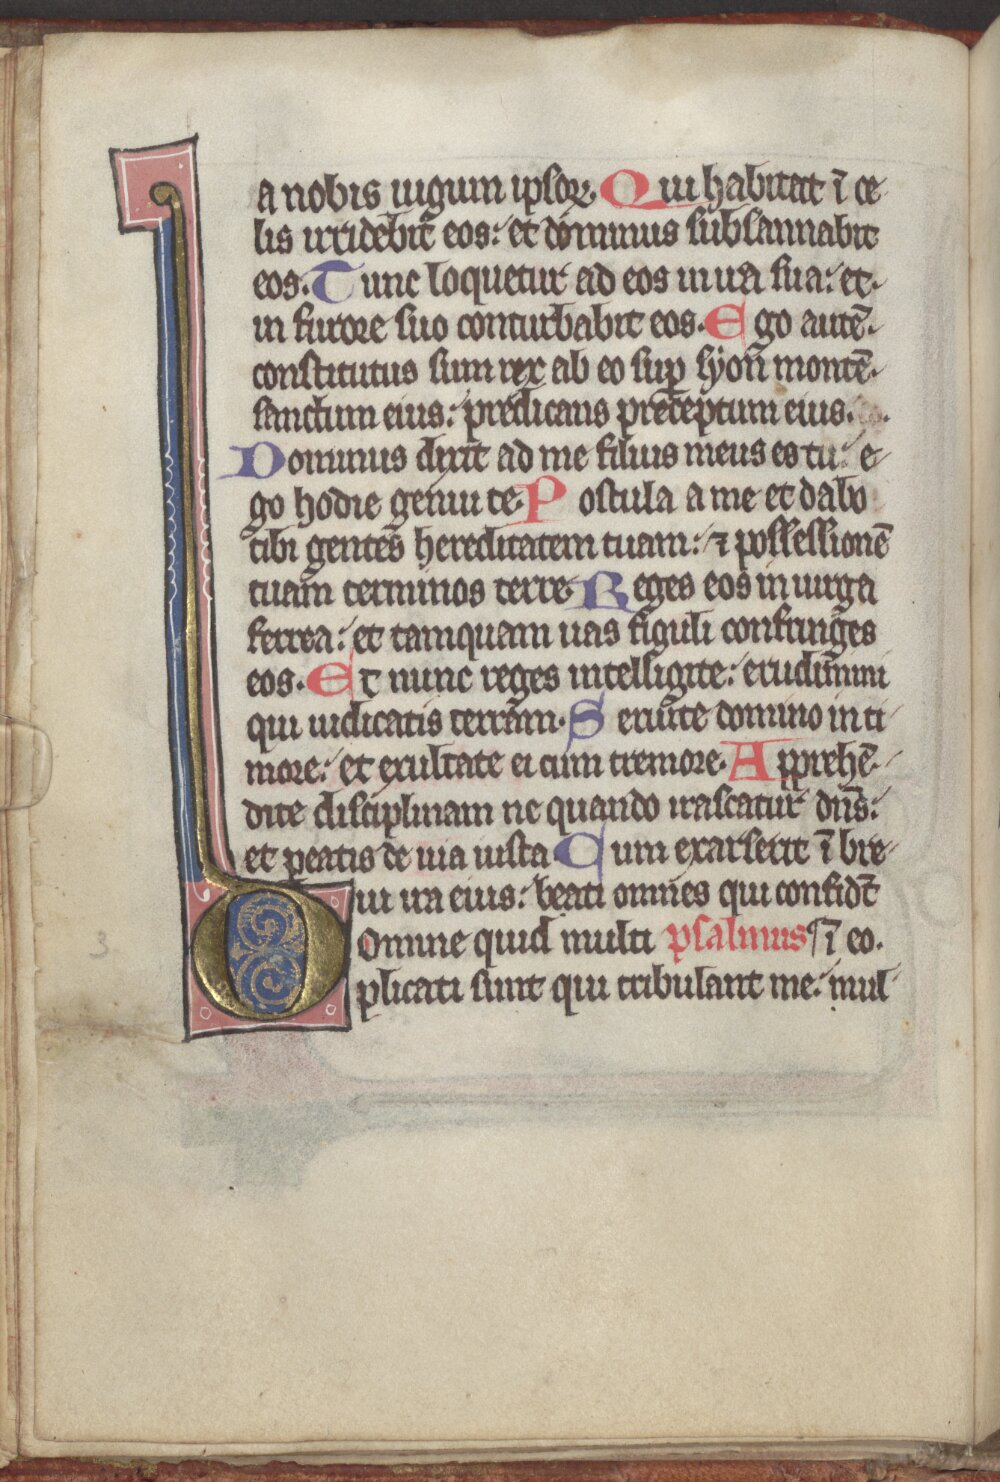 a nobis iugum ipsoꝝ. Qui habitat ī ce
lis irridebit̄ eos: et dominus subsannabit
eos. Tunc loquetur ad eos in ira sua: et
in furore suo conturbabit eos. Ego autē
constitutus sum rex ab eo sup̱ syon montē
sanctum eius: predicans preceptum eius.
Dominus dixit ad me filius meus es tu: e
go hodie genui te. Postula a me et dabo
tibi gentes hereditatem tuam: ⁊ possessionē
tuam terminos terre. Reges eos in uirga
ferrea: et tamquam uas figuli confringes
eos. Et nunc reges intelligite: erudimini
qui iudicatis terram. Seruite domino in ti
more: et exultate ei cum tremore. Apprehē
dite disciplinam ne quando irascatur dn̄s:
et peatis de uia iusta Cum exarserit ī bre
ui ira eius: beati omnes qui confidt̄
Domine quid multi psalmus ī eo.
plicati sunt qui tribulant me: mul
3